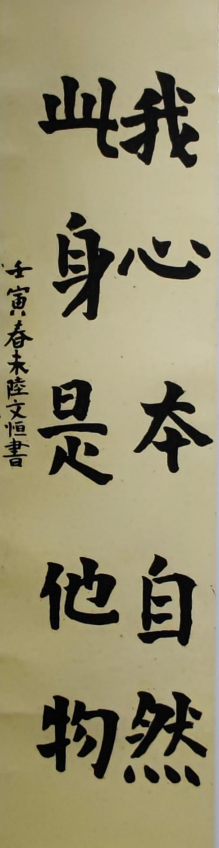 我心本自然
此身是他物
壬寅春末陸文恒書